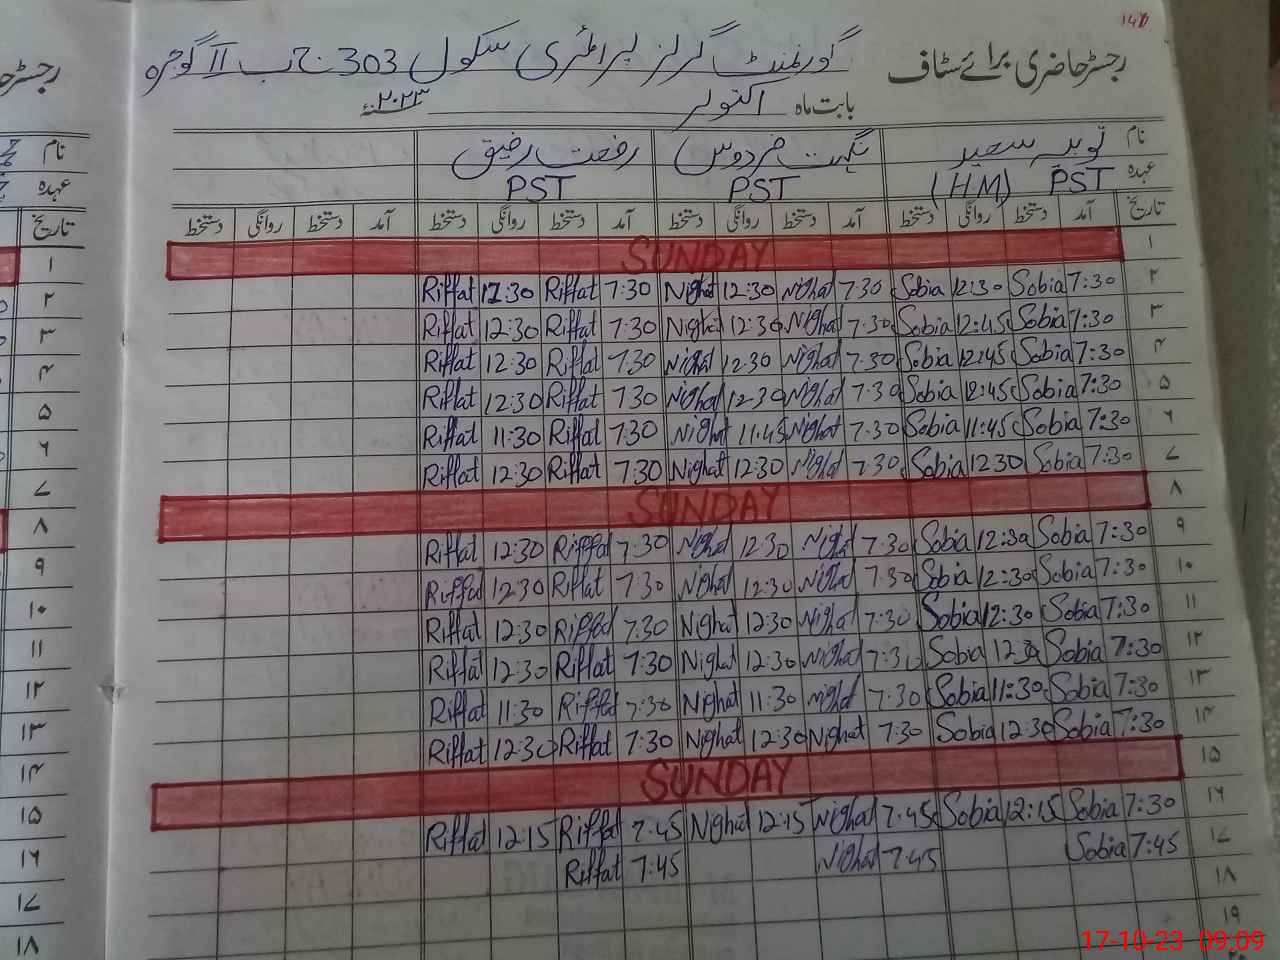 146
رجسٹر حاضری برائے سٹاف گورنمنٹ گرلز پرائمری سکول 303 ج ب II گوجرہ
بابت ماہ اکتوبر ۲۰۲۳ء
نام ثوبیہ سعید نگہت فردوس رفعت رفیق
عہدہ PST (HM) PST PST
تاریخ آمد دستخط روانگی دستخط آمد دستخط روانگی دستخط آمد دستخط روانگی دستخط آمد دستخط روانگی دستخط
۱ SUNDAY
۲ 7:30 Sobia 12:30 Sobia 7:30 Nighat 12:30 Nighat 7:30 Riffat 12:30 Riffat
۳ 7:30 Sobia 12:45 Sobia 7:30 Nighat 12:30 Nighat 7:30 Riffat 12:30 Riffat
۴ 7:30 Sobia 12:45 Sobia 7:30 Nighat 12:30 Nighat 7:30 Riffat 12:30 Riffat
۵ 7:30 Sobia 12:45 Sobia 7:30 Nighat 12:30 Nighat 7:30 Riffat 12:30 Riffat
۶ 7:30 Sobia 11:45 Sobia 7:30 Nighat 11:45 Nighat 7:30 Riffat 11:30 Riffat
۷ 7:30 Sobia 12:30 Sobia 7:30 Nighat 12:30 Nighat 7:30 Riffat 12:30 Riffat
۸ SUNDAY
۹ 7:30 Sobia 12:30 Sobia 7:30 Nighat 12:30 Nighat 7:30 Riffat 12:30 Riffat
۱۰ 7:30 Sobia 12:30 Sobia 7:30 Nighat 12:30 Nighat 7:30 Riffat 12:30 Riffat
۱۱ 7:30 Sobia 12:30 Sobia 7:30 Nighat 12:30 Nighat 7:30 Riffat 12:30 Riffat
۱۲ 7:30 Sobia 12:30 Sobia 7:30 Nighat 12:30 Nighat 7:30 Riffat 12:30 Riffat
۱۳ 7:30 Sobia 11:30 Sobia 7:30 Nighat 11:30 Nighat 7:30 Riffat 11:30 Riffat
۱۴ 7:30 Sobia 12:30 Sobia 7:30 Nighat 12:30 Nighat 7:30 Riffat 12:30 Riffat
۱۵ SUNDAY
۱۶ 7:30 Sobia 12:15 Sobia 7:45 Nighat 12:15 Nighat 7:45 Riffat 12:15 Riffat
۱۷ 7:45 Sobia 7:45 Nighat 7:45 Riffat
۱۸
۱۹
نام
عہدہ
تاریخ
۱
۲
۳
۴
۵
۶
۷
۸
۹
۱۰
۱۱
۱۲
۱۳
۱۴
۱۵
۱۶
۱۷
۱۸
17-10-23 09:09